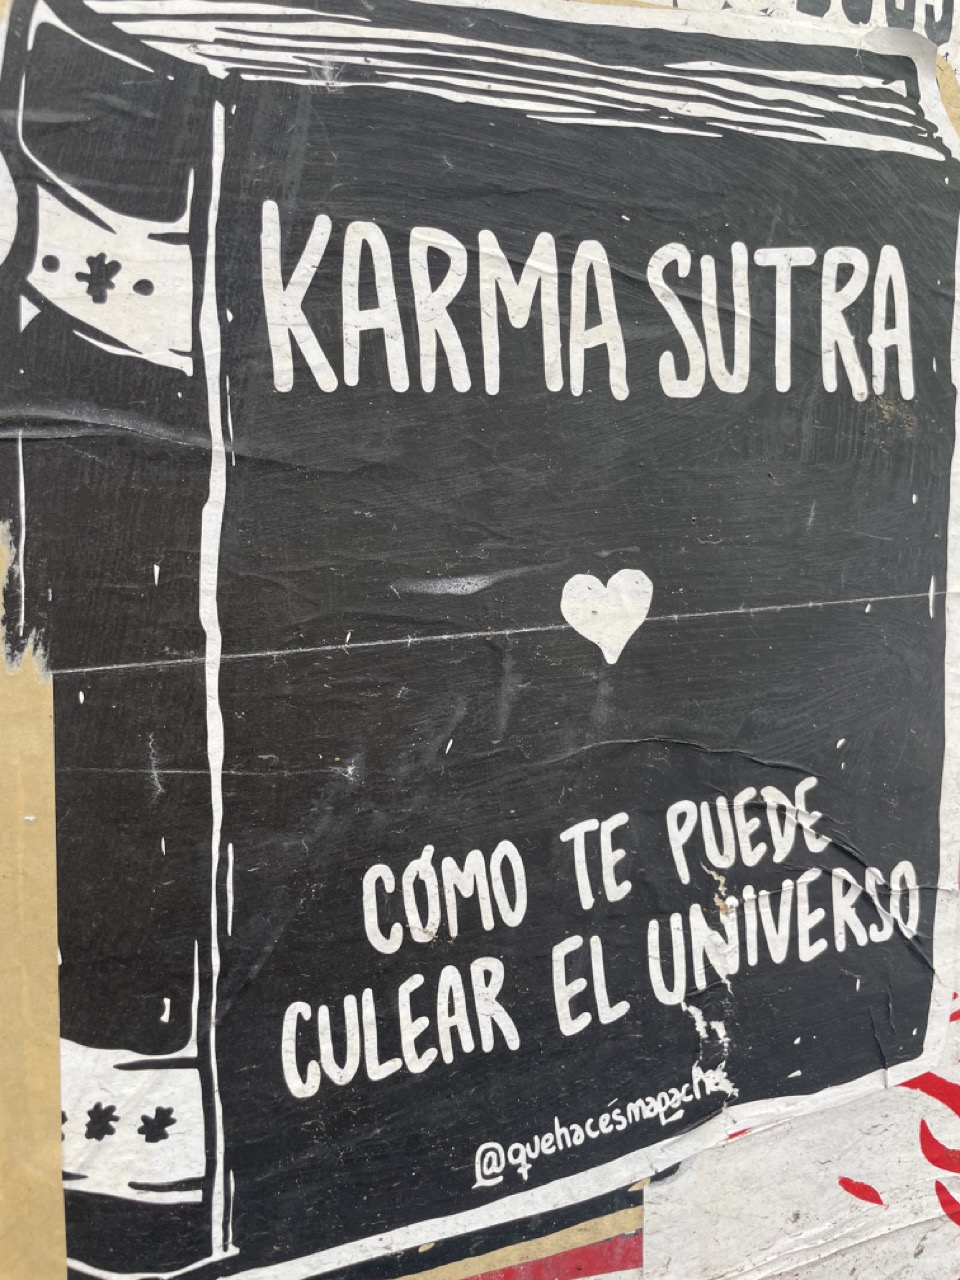 KARMA SUTRA
CÓMO TE PUEDE
CULEAR EL UNIVERSO